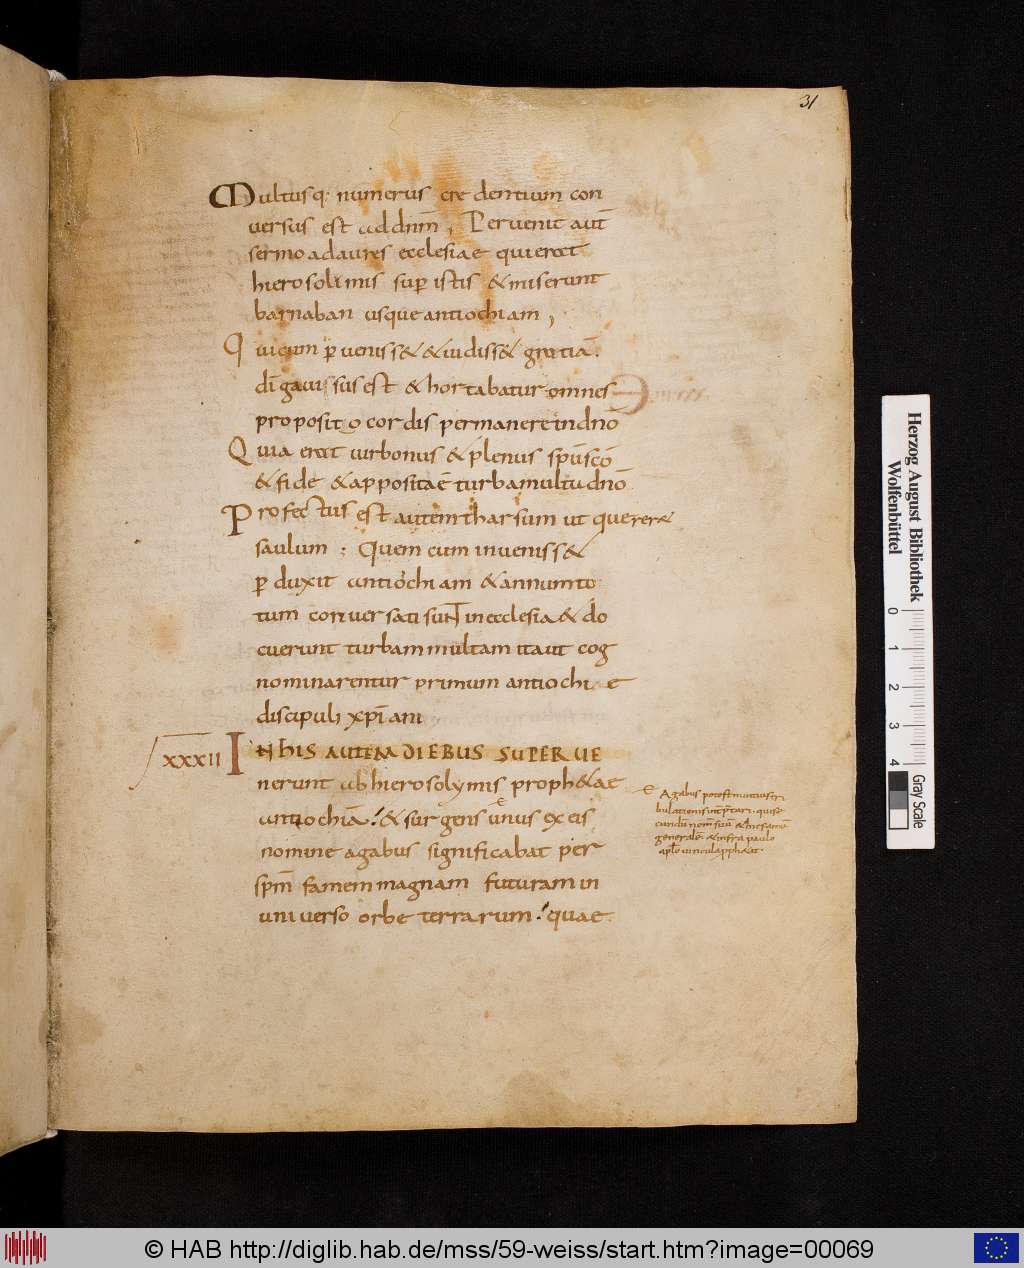 31
Multusq: numerus credentium con
versus est ad dnm̄, Pervenit aut̄
sermo ad aures ecclesiae quierat
hierosolimis sup̄ istis & miserunt
barnaban usque antiochiam,
Qui cum p̄venisset & vidisset gratiā.
dī gavisus est & hortabatur omnes
proposito cordis permanere in dn̄o
Quia erat vir bonus & plenus sp̄u sc̄o
& fide & apposita ē turba multu dn̄o
Profectus est autem tharsum ut quereret
saulum : Quem cum invenisset
p̄duxit antiochiam & annum to
tum conversati sunt in ecclesia & do
cuerunt turbam multam ita ut cog
nominarentur primum antiochiae
discipuli xp̄iani
XXXII IN HIS AUTEM DIEBUS SUPERVE
nerunt ab hierosolymis prophetae
antiochiā. & surgens unus ex eis
nomine agabus significabat per
sp̄m famem magnam futuram in
universo orbe terrarum. quae
Agabus potest nuntius tri
bulationis
secundū nom̄ suū
generalē & infra paulo
apl̄o vincula
Herzog August Bibliothek
Wolfenbüttel
0 1 2 3 4
Gray Scale
© HAB http://diglib.hab.de/mss/59-weiss/start.htm?image=00069